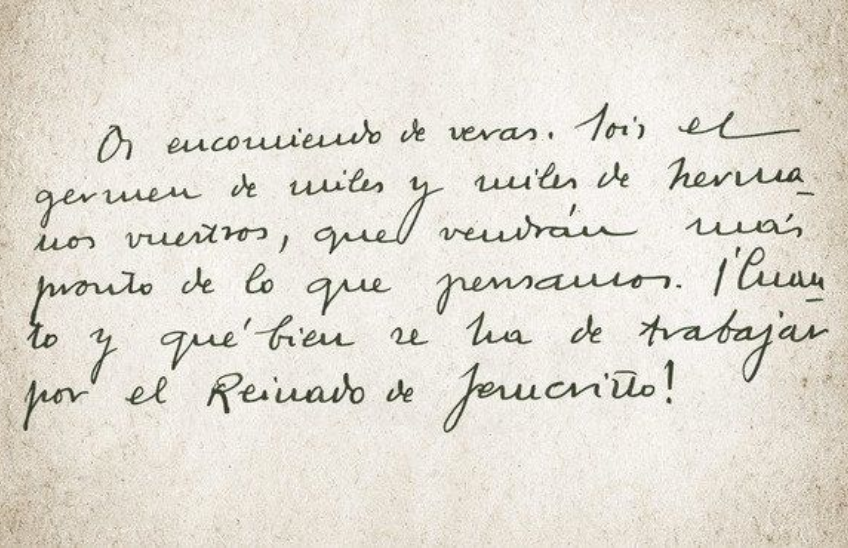 Os encomiendo de veras. Sois el
germen de miles y miles de herma_
nos vuestros, que vendrán más
pronto de lo que pensamos. ¡Cuan_
to y qué bien se ha de trabajar
por el Reinado de Jesucristo!